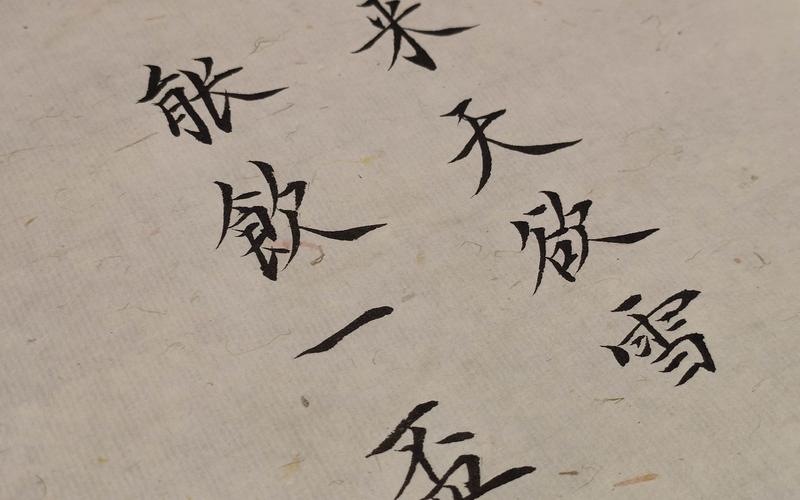 来天欲雪
能飲一盃